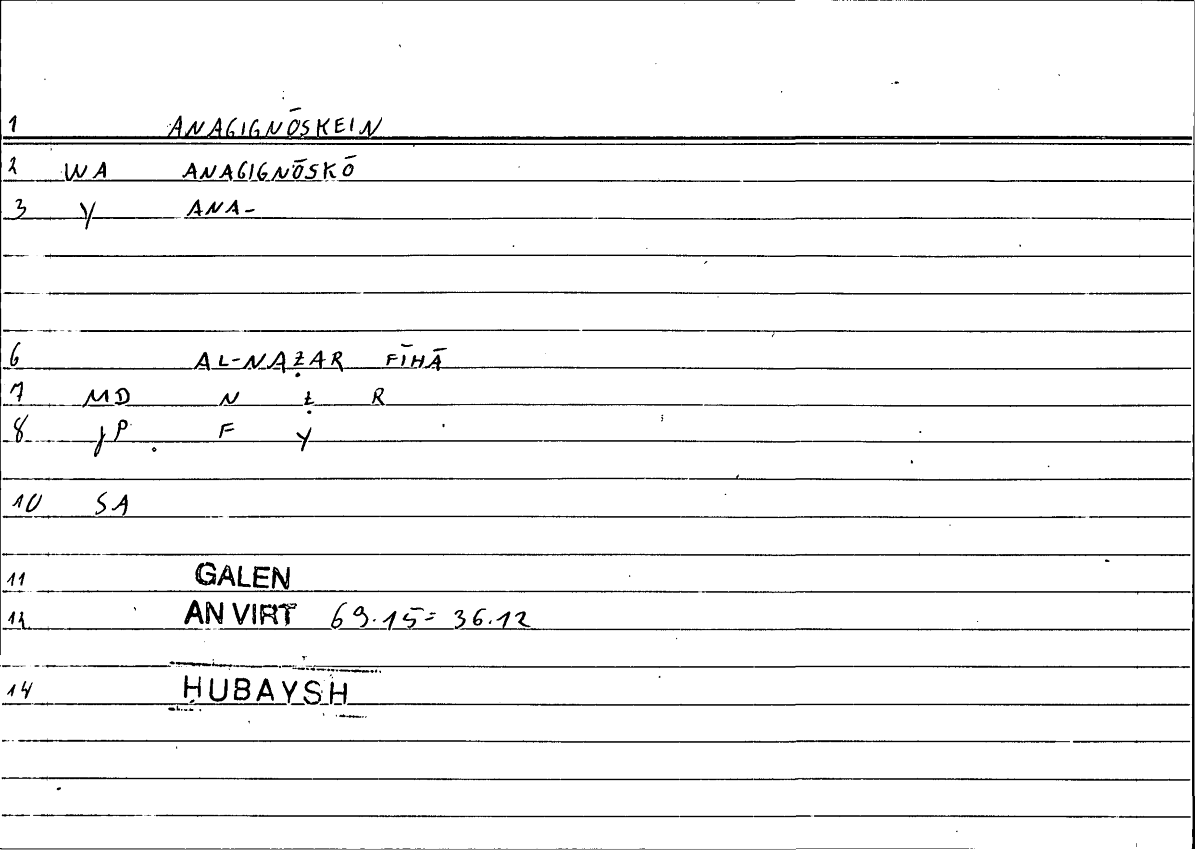 1 ANAGIGNŌSKEIN
2 WA ANAGIGNŌSKŌ
3 Y ANA-
6 AL-NAẒAR FĪHĀ
7 MD N Ẓ R
8 jP F Y
10 SA
11 GALEN
12 AN VIRT 69.15 = 36.12
14 ḤUBAYSH